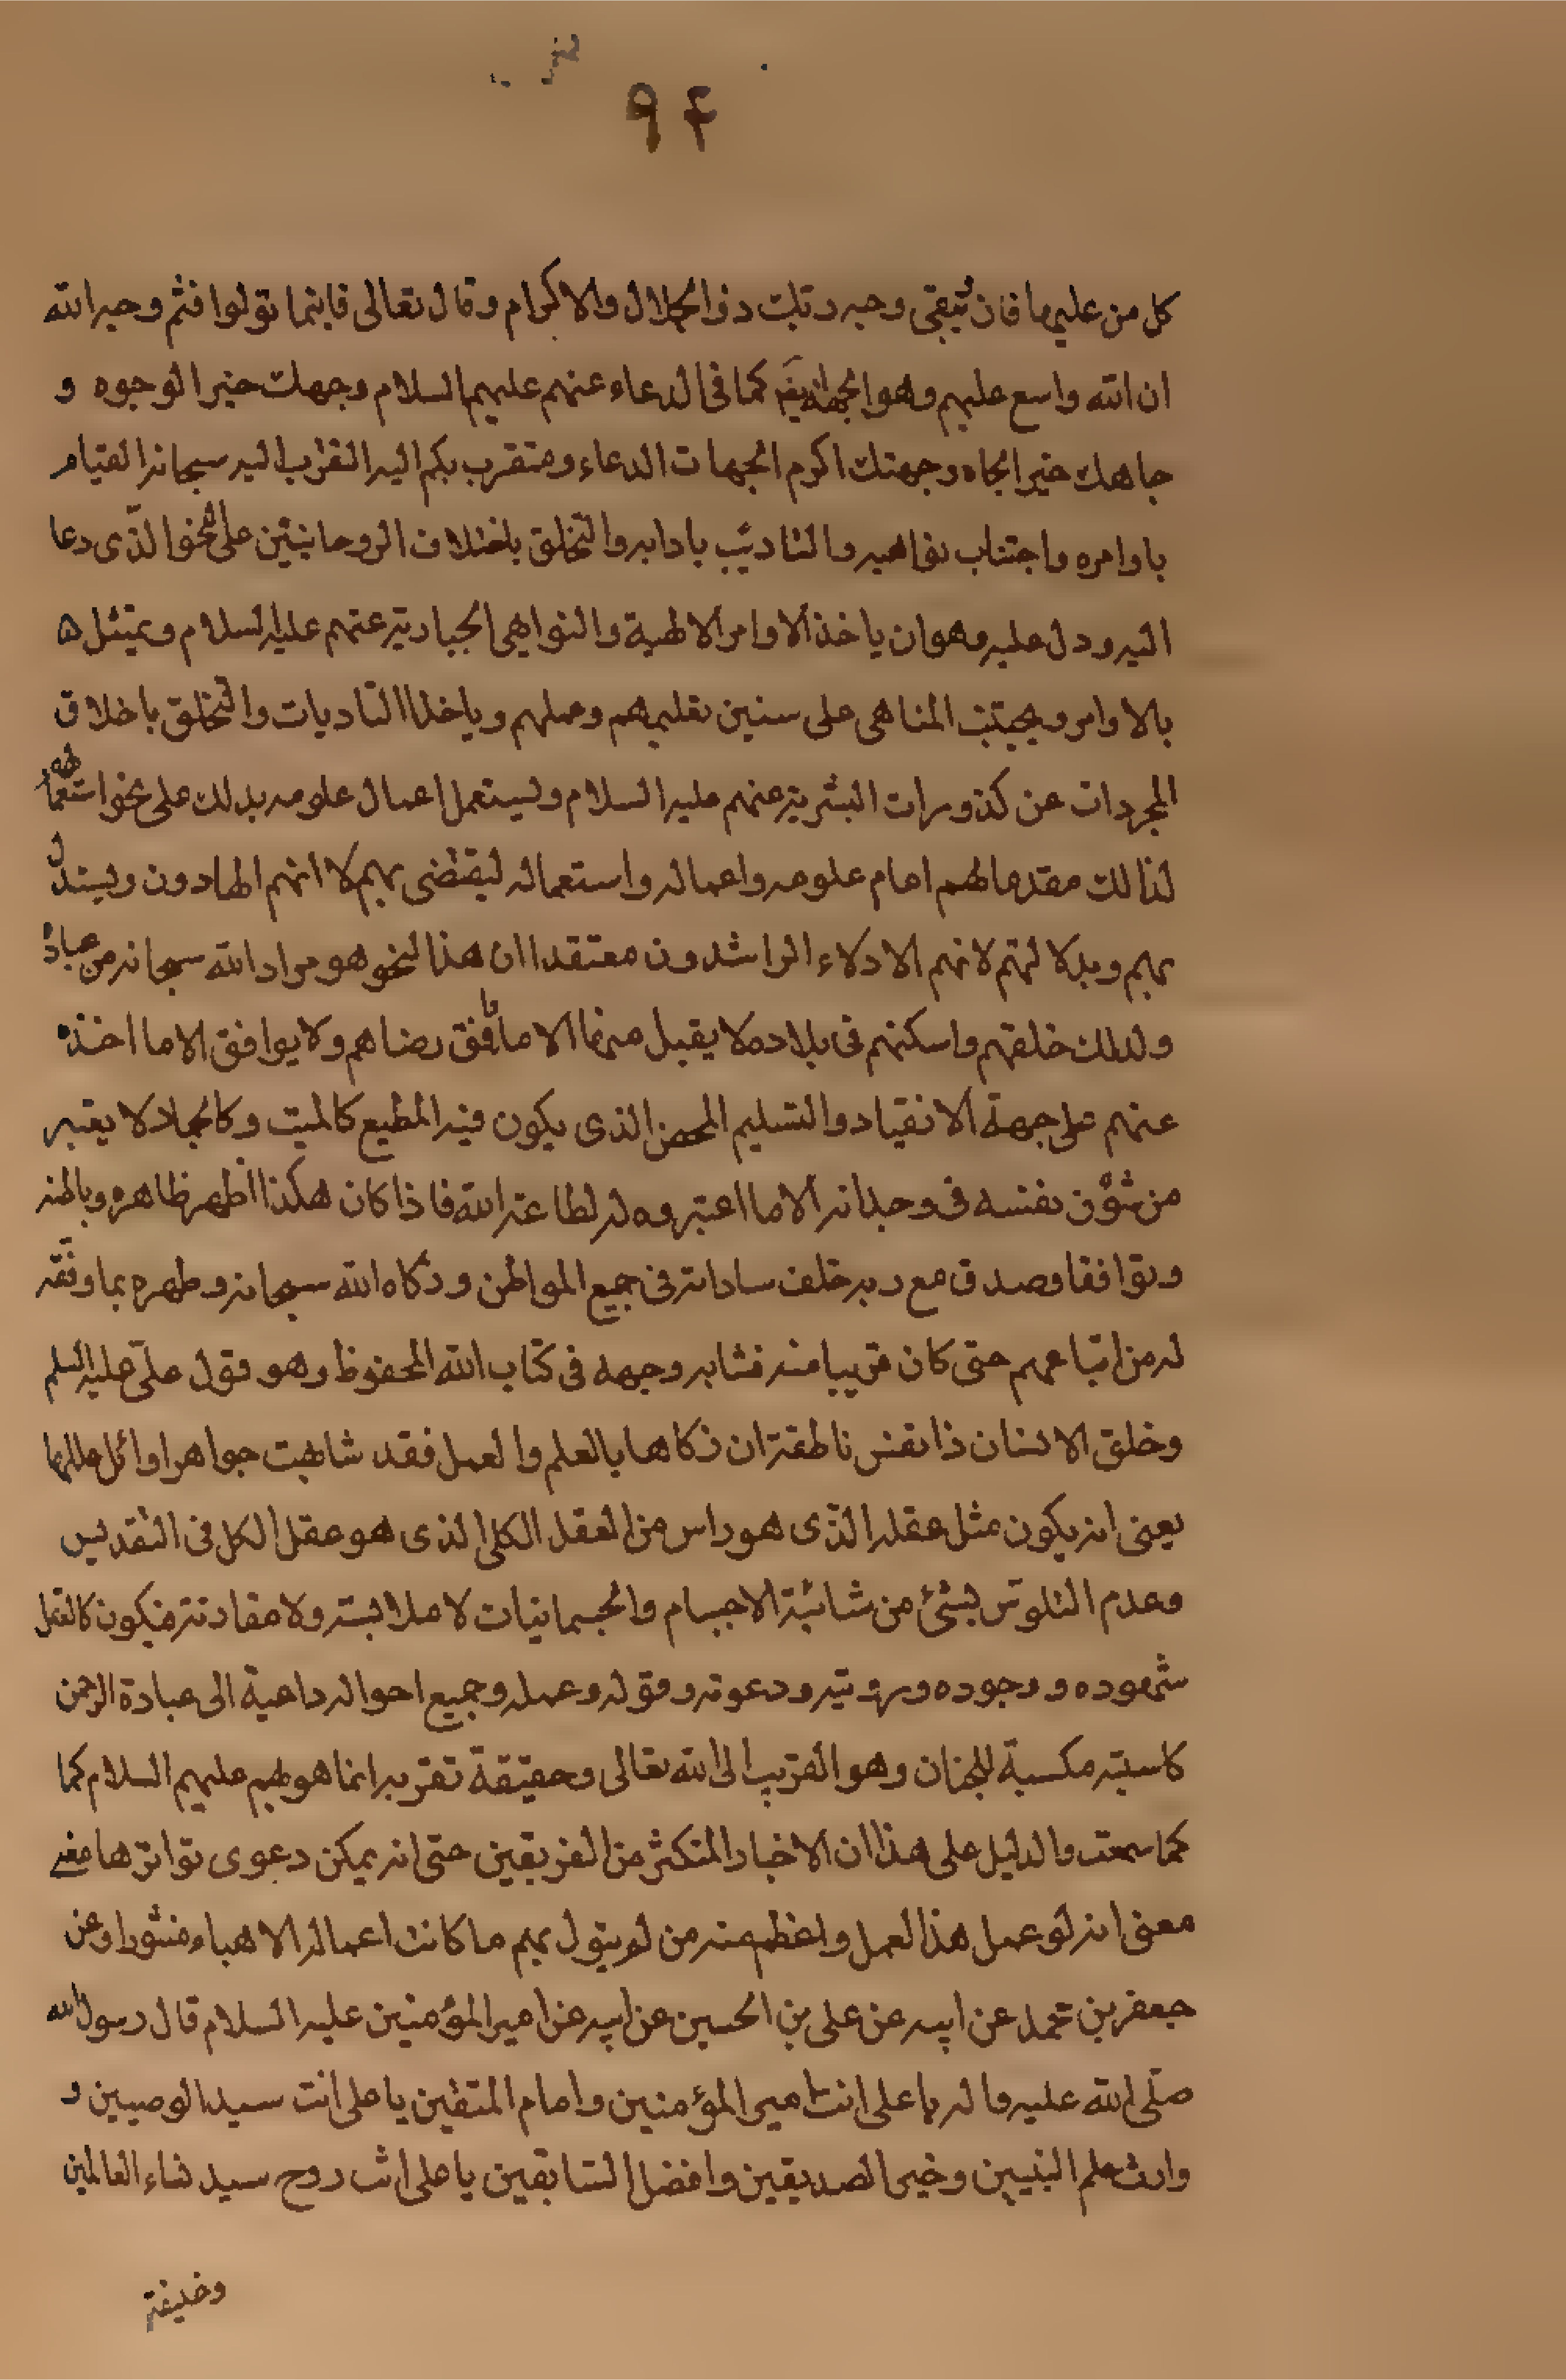 ۹۴
كل من عليها فان ويبقى وجه ربك ذو الجلال والاكرام وقال تعالى فاينما تولوا فثم وجه الله
ان الله واسع عليم وهو الجهة ايضا كما فى الدعاء عنهم عليهم السلام وجهك خير الوجوه و
جاهك خير الجاه وجهتك اكرم الجهات الدعاء ومتقرب بكم اليه التقرب اليه سبحانه القيام
باوامره واجتناب نواهيه والتاديب بادابه والتخلق باخلاق الروحانيين على النحو الذى دعا
اليه ودل عليه وهو ان ياخذ الاوامر الالهية والنواهى الجبارية عنهم عليه السلام ويمتثل ه
بالاوامر ويجتنب المناهى على سنين تعليمهم وعملهم وياخذ التاديات والتخلق باخلاق
المجردات عن كذورات البشرية عنهم عليه السلام وليستعمل اعمال علومه بذلك على نحو استعمالهم
لذالك مقدما لهم امام علومه واعماله واستعماله ليقتضى بهم لانهم الهادون ويستدل
بهم وبدلالتهم لانهم الادلاء الراشدون معتقدا ان هذا النحو هو مراد الله سبحانه من عباده
ولذلك خلقهم واسكنهم فى بلاده لا يقبل منها الا ما وافق رضاهم ولا يوافق الا ما اخذه
عنهم على جهة الانقياد والتسليم المحض الذى يكون فيه المطيع كالميت وكالجماد لا يعتبر
من شؤن نفسه فى وجدانه الا ما اعتبروه له لطاعة الله فاذا كان هكذا اظهر ظاهره وباطنه
وتوافقا وصدق مع ربه خلف ساداته فى جميع المواطن وزكاه الله سبحانه وطهره بما وفقه
له من اتباعهم حتى كان قريبا منه فشابه وجهه فى كتاب الله المحفوظ وهو قول على عليه السلم
وخلق الانسان ذا نفس ناطقة ان زكاها بالعلم والعمل فقد شابهت جواهر اوائل عللها
يعنى انه يكون مثل عقله الذى هو راس من العقل الكلى الذى هو عقل الكل فى التقديس
وعدم التلوث بشئ من شائبة الاجسام والجسمانيات لا ملابسة ولا مقارنة فيكون كالعقل
شهوده ووجوده ورؤيته ودعوته وقوله وعمله وجميع احواله داعية الى عبادة الرحمن
كاسبة مكسبة للجنان وهو القريب الى الله تعالى وحقيقة تقربه انما هو بهم عليهم السلام كما
كما سمعت والدليل على هذا ان الاخبار المتكثر من الفريقين حتى انه يمكن دعوى تواترها معنى
معنى انه لو عمل هذا العمل واعظم منه من لم يتول بهم ما كانت اعماله الا هباء منثورا وعن
جعفر بن محمد عن ابيه عن على بن الحسين عن ابيه عن امير المؤمنين عليه السلام قال رسول الله
صلى الله عليه واله يا على انت امير المؤمنين وامام المتقين يا على انت سيد الوصيين و
وارث علم النبيين وخير الصديقين وافضل السابقين يا على انت زوج سيد نساء العالمين
وخليفة